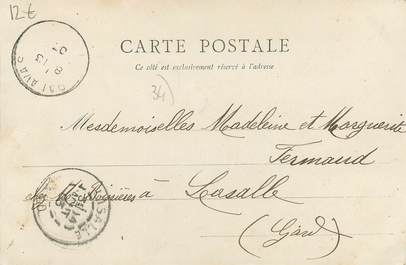 12€
CARTE POSTALE
Ce côté est exclusivement réservé à l'adresse
34
Mesdemoiselles Madeleine et Marguerite
Fermaud
à Lasalle
(Gard)
LASALLE